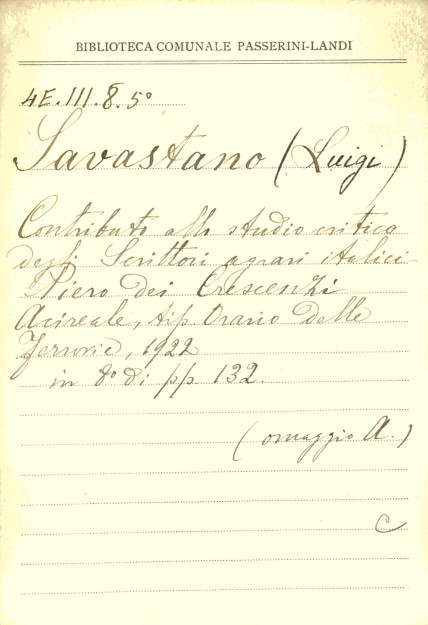 BIBLIOTECA COMUNALE PASSERINI-LANDI
4E.III.8.5°
Savastano (Luigi)
Contributo allo studio critico
degli Scrittori agrari italici
Piero dei Crescenzi
Acireale, tip Orario delle
Ferrovie, 1922
in 8° di pp 132.
(omaggio A.)
C